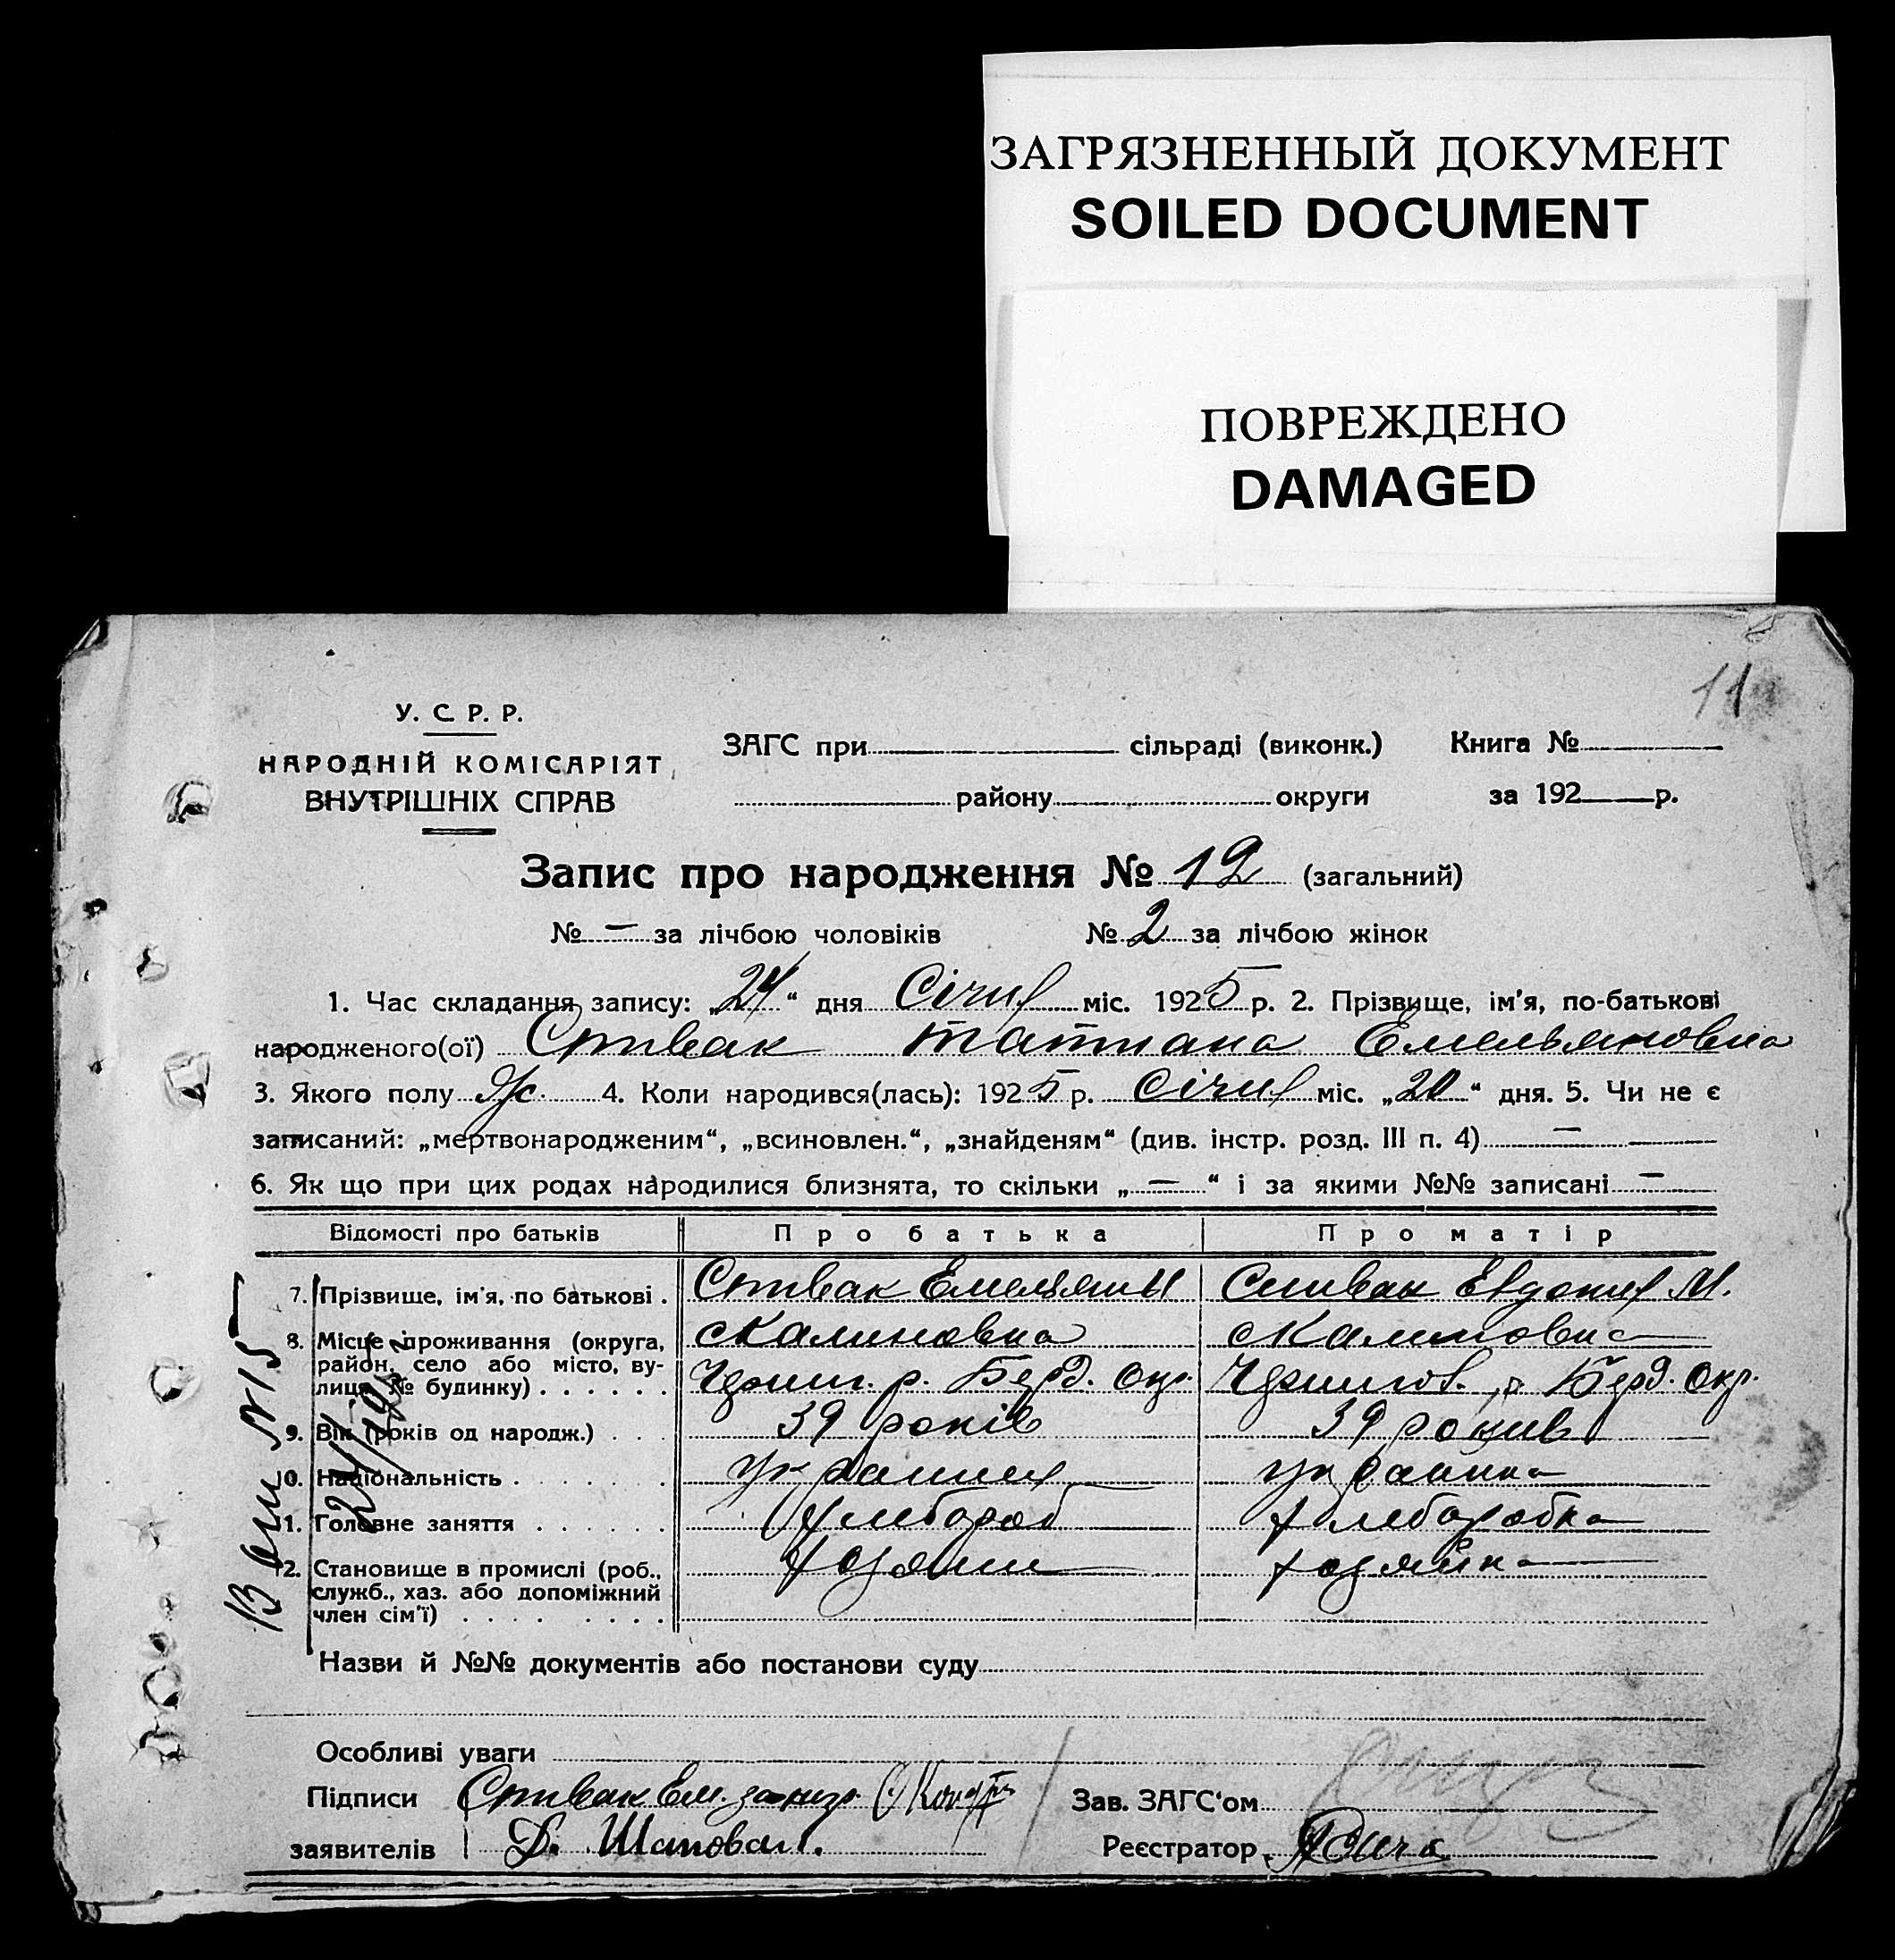 ЗАГРЯЗНЕННЫЙ ДОКУМЕНТ
SOILED DOCUMENT
ПОВРЕЖДЕНО
DAMAGED
11
У. С. Р. Р.
НАРОДНІЙ КОМІСАРІЯТ
ВНУТРІШНІХ СПРАВ
ЗАГС при сільраді (виконк.) Книга №
району округи за 192 р.
Запис про народження № 12 (загальний)
№ – за лічбою чоловіків № 2 за лічбою жінок
1. Час складання запису: „24“ дня Січня міс. 1925 р. 2. Прізвище, ім'я, по-батькові
народженого(ої) Співак Татиана Емельяновна
3. Якого полу ж. 4. Коли народився(лась): 1925 р. Січня міс. „20“ дня. 5. Чи не є
записаний: „мертвонародженим“, „всиновлен.“, „знайденям“ (див. інстр. розд. III п. 4) –
6. Як що при цих родах народилися близнята, то скільки „–“ і за якими №№ записані –
Відомості про батьків Про батька Про матір
7. Прізвище, ім'я, по батькові . Співак Емельян И Спивак Евдокия М.
8. Місце проживання (округа, район, село або місто, вулиця, № будинку) . . . . . . Калиновка Калиновка
р. Берд. Окр. р. Берд. Окр.
9. Вік (років од народж.) . . . 39 років 39 рокив
10. Національність . . . . . . Українка
11. Головне заняття . . . . . . Хлебороб хлеборобка
12. Становище в промислі (роб., служб., хаз. або допоміжний член сім'ї) . . . . . . . . хозяин хозяйка
Назви й №№ документів або постанови суду
Особливі уваги
Підписи Співак Ем.
заявителів Д. Шаповал.
Зав. ЗАГС'ом
Реєстратор
№15